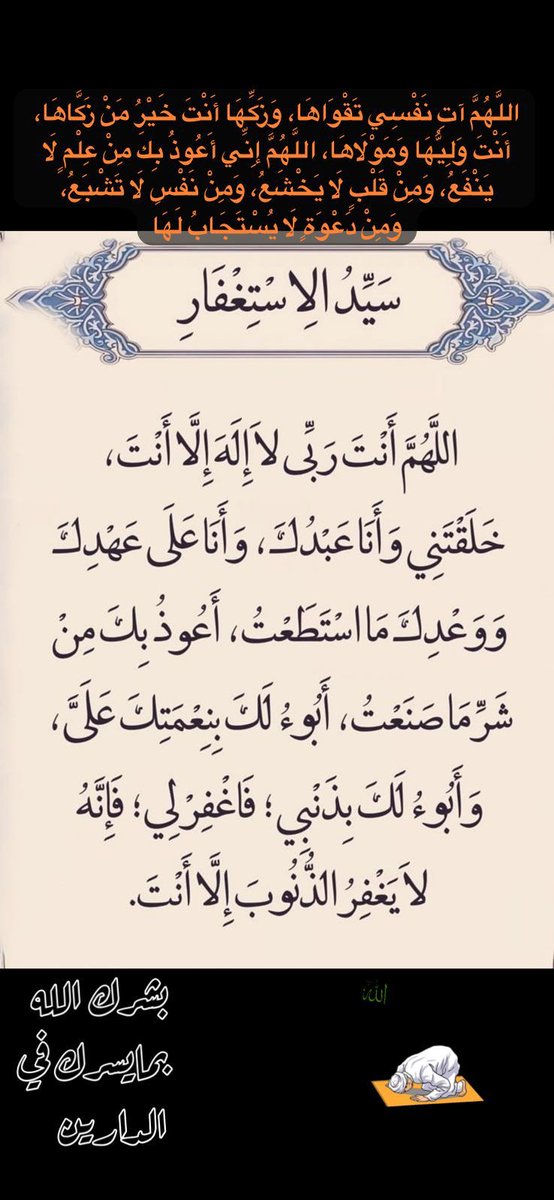 اللَّهُمَّ آتِ نَفْسِي تَقْوَاهَا، وَزَكِّهَا أَنْتَ خَيْرُ مَنْ زَكَّاهَا،
أَنْتَ وَلِيُّهَا وَمَوْلَاهَا، اللَّهُمَّ إِنِّي أَعُوذُ بِكَ مِنْ عِلْمٍ لَا
يَنْفَعُ، وَمِنْ قَلْبٍ لَا يَخْشَعُ، وَمِنْ نَفْسٍ لَا تَشْبَعُ،
وَمِنْ دَعْوَةٍ لَا يُسْتَجَابُ لَهَا
سَيِّدُ الِاسْتِغْفَارِ
اللَّهُمَّ أَنْتَ رَبِّى لاَ إِلَهَ إِلَّا أَنْتَ،
خَلَقْتَنِي وَأَنَا عَبْدُكَ، وَأَنَا عَلَى عَهْدِكَ
وَوَعْدِكَ مَا اسْتَطَعْتُ، أَعُوذُ بِكَ مِنْ
شَرِّ مَا صَنَعْتُ، أَبُوءُ لَكَ بِنِعْمَتِكَ عَلَىَّ،
وَأَبُوءُ لَكَ بِذَنْبِي؛ فَاغْفِرْ لِي؛ فَإِنَّهُ
لاَ يَغْفِرُ الذُّنُوبَ إِلَّا أَنْتَ.
بشرك الله
بمايسرك في
الدارين
الله